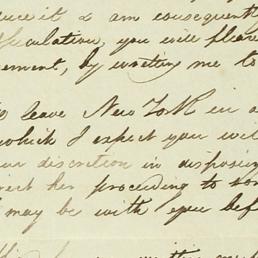 it & am consequently
speculation, you will please
by writing me to
leave New York in a
which I expect you wil
discretion in disposing
her proceeding to som
may be with you bef